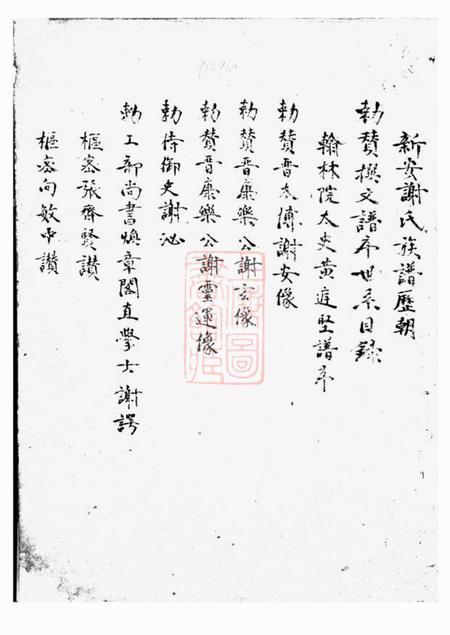 新安謝氏族譜歷朝
勅賛撰文譜序世系目録
翰林院太史黄庭堅譜序
勅賛晋太傅謝安像
勅賛晋康樂公謝玄像
勅賛晋康樂公謝靈運像
勅侍御史謝泌
勅工部尚書煥章閣直學士謝諤
樞密張齊賢讃
樞密向敏中讃